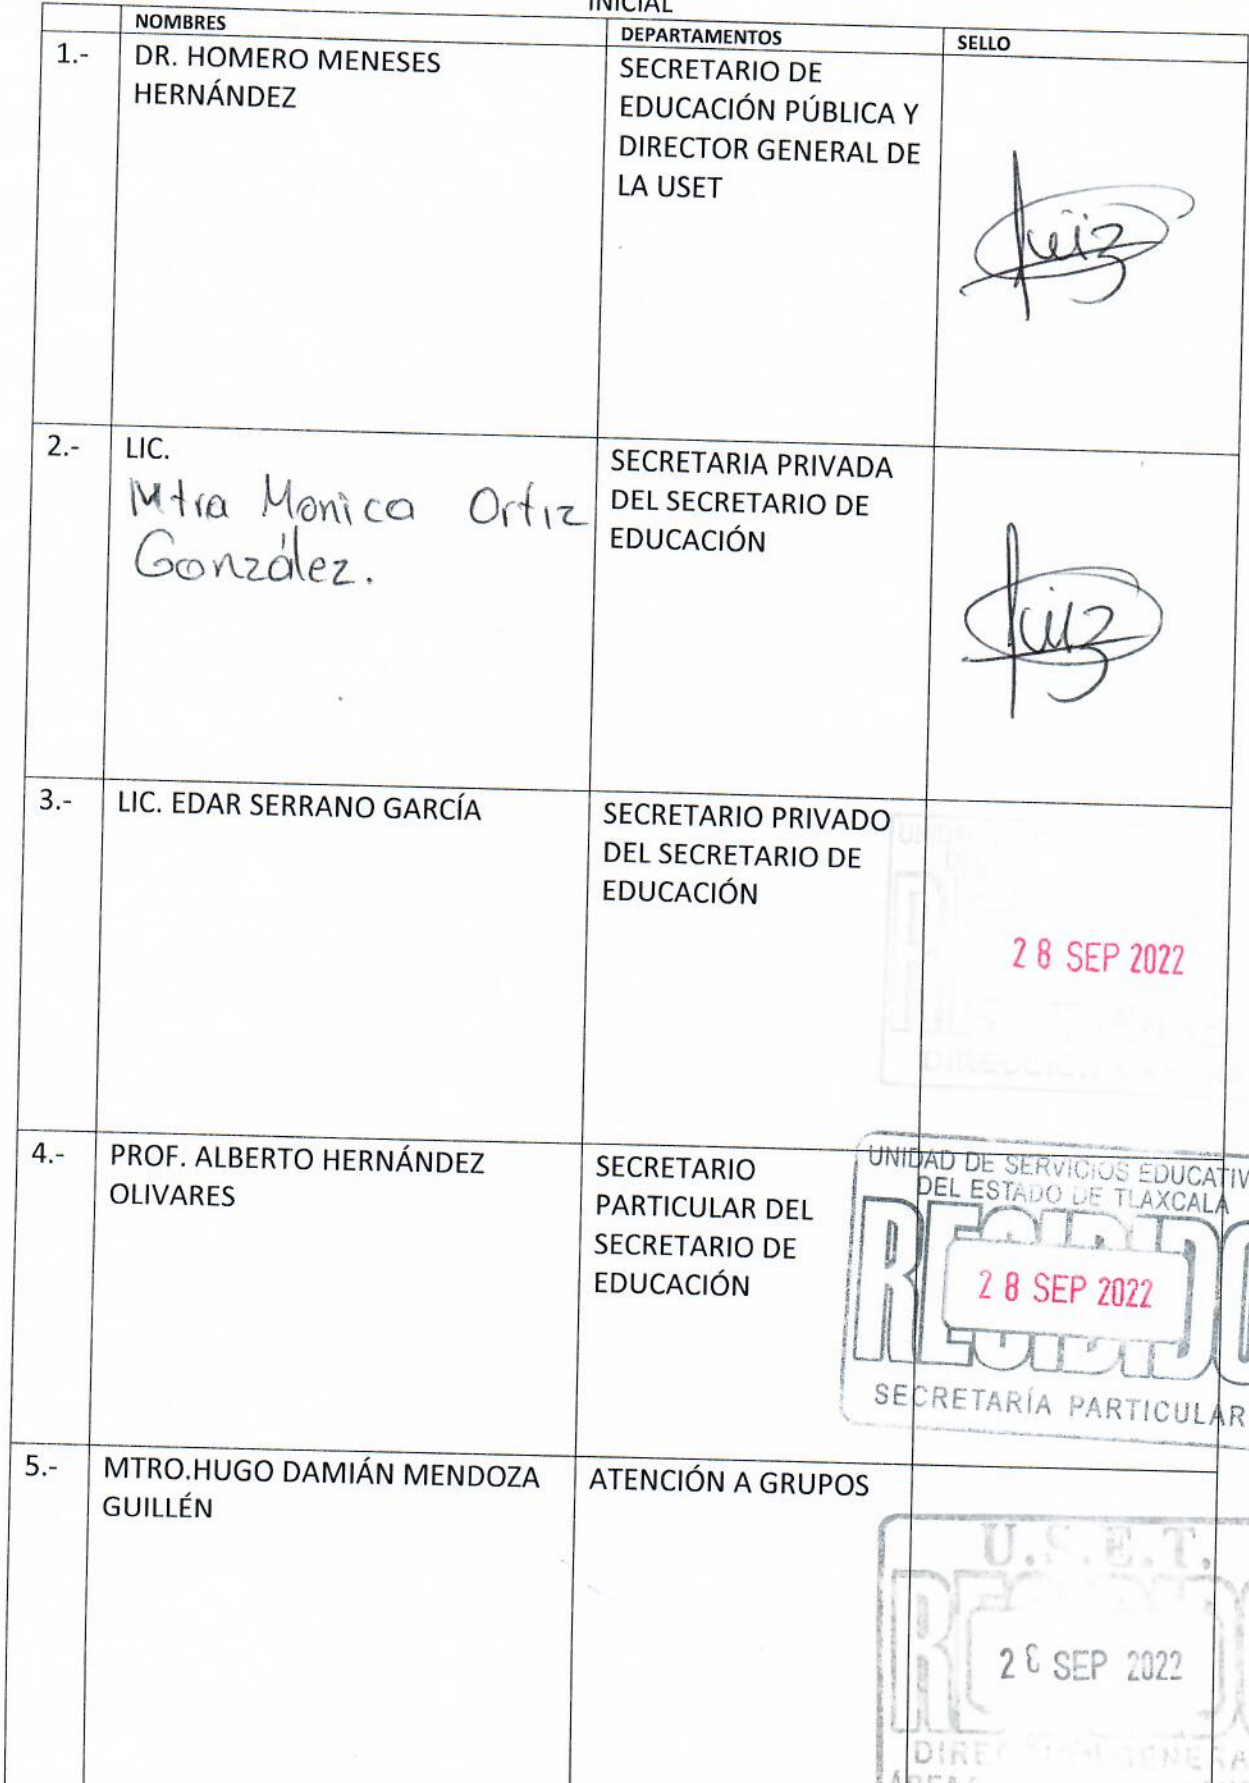 INICIAL
NOMBRES
DEPARTAMENTOS
SELLO
1.-
DR. HOMERO MENESES
HERNÁNDEZ
SECRETARIO DE
EDUCACIÓN PÚBLICA Y
DIRECTOR GENERAL DE
LA USET
2.-
LIC.
Mtra Monica Ortiz
González.
SECRETARIA PRIVADA
DEL SECRETARIO DE
EDUCACIÓN
3.-
LIC. EDAR SERRANO GARCÍA
SECRETARIO PRIVADO
DEL SECRETARIO DE
EDUCACIÓN
28 SEP 2022
DIRECCIÓN
4.-
PROF. ALBERTO HERNÁNDEZ
OLIVARES
SECRETARIO
PARTICULAR DEL
SECRETARIO DE
EDUCACIÓN
UNIDAD DE SERVICIOS EDUCATIV
DEL ESTADO DE TLAXCALA
RECIBIDO
28 SEP 2022
SECRETARÍA PARTICULAR
5.-
MTRO.HUGO DAMIÁN MENDOZA
GUILLÉN
ATENCIÓN A GRUPOS
U.S.E.T.
RECIBIDO
SEP 2022